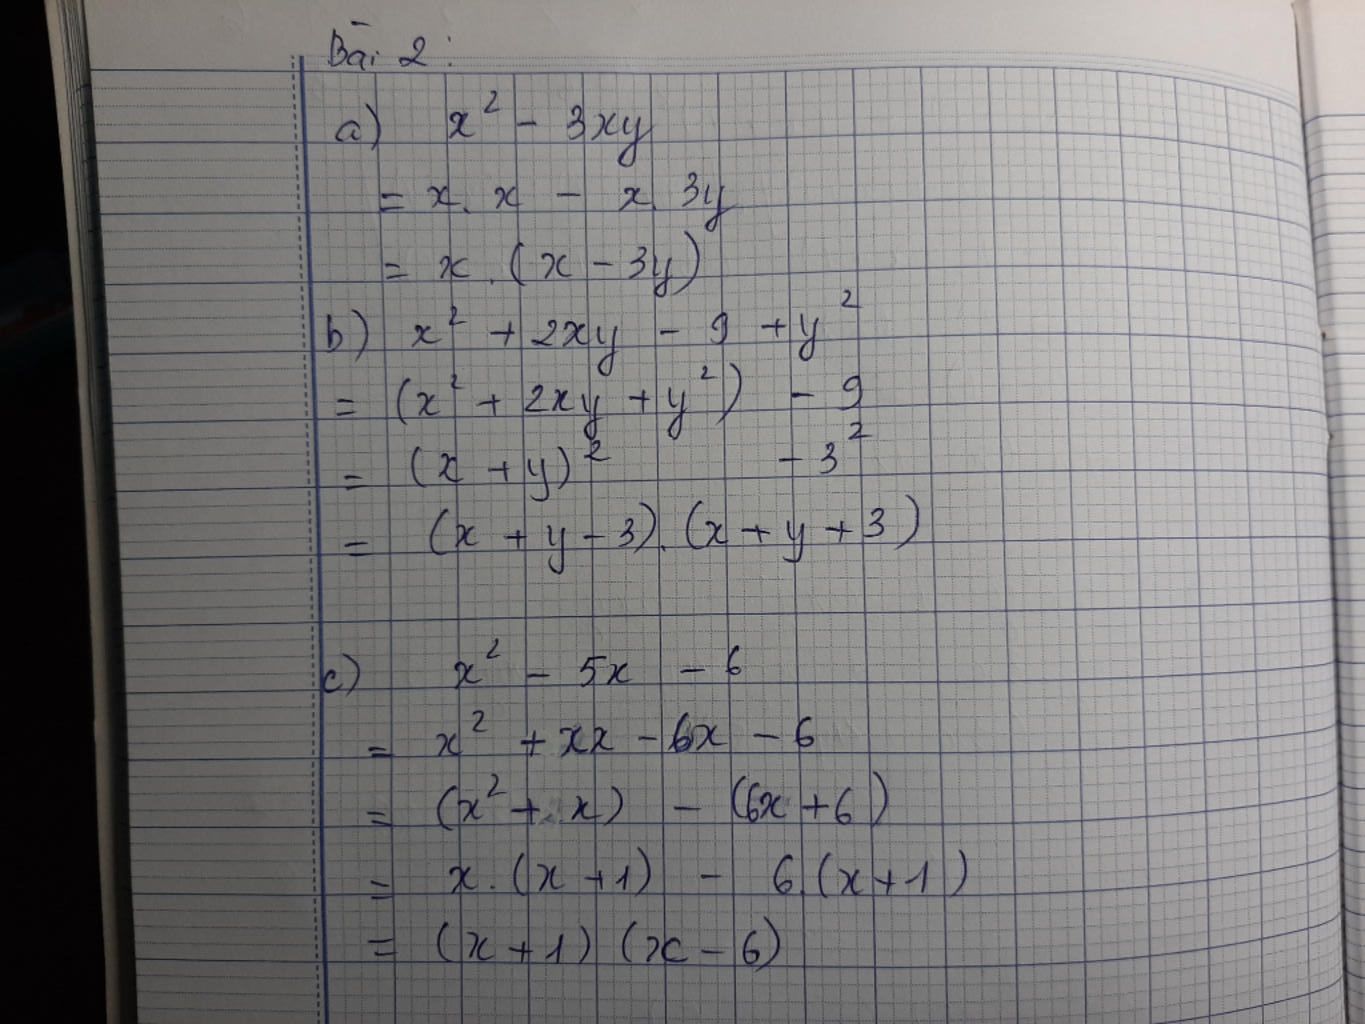 Bài 2:
a) x² - 3xy
= x. x - x. 3y
= x. (x - 3y)
b) x² + 2xy - 9 + y²
= (x² + 2xy + y²) - 9
= (x + y)² - 3²
= (x + y - 3). (x + y + 3)
c) x² - 5x - 6
= x² + xx - 6x - 6
= (x² + x) - (6x + 6)
= x. (x + 1) - 6. (x + 1)
= (x + 1) (x - 6)